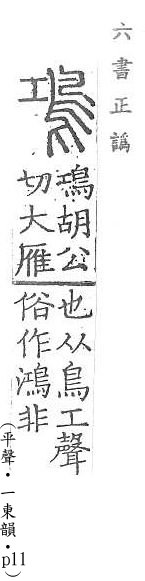 六書正譌
䲨
䲨胡公
切大雁
也从鳥工聲
俗作鴻非
（平聲·一東韻·p11）